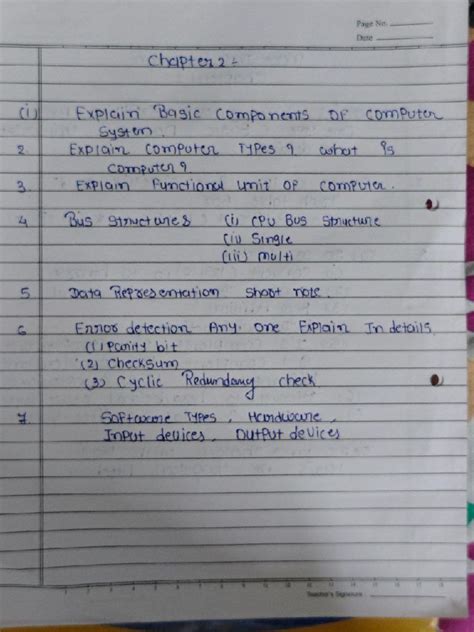 Page No.
Date
Chapter 2 :-
(i) Explain Basic Components OF Computer
System.
2. Explain Computer Types ? what is
Computer ?
3. Explain Functional Unit OF Computer.
4 Bus Structures (i) CPU Bus Structure
(ii) Single
(iii) multi
5 Data Representation Short note.
6 Error detection Any one Explain In details.
(1) Parity bit
(2) Checksum
(3) Cyclic Redundany check
7 Software Types, Hardware,
Input devices, Output devices
Teacher's Signature